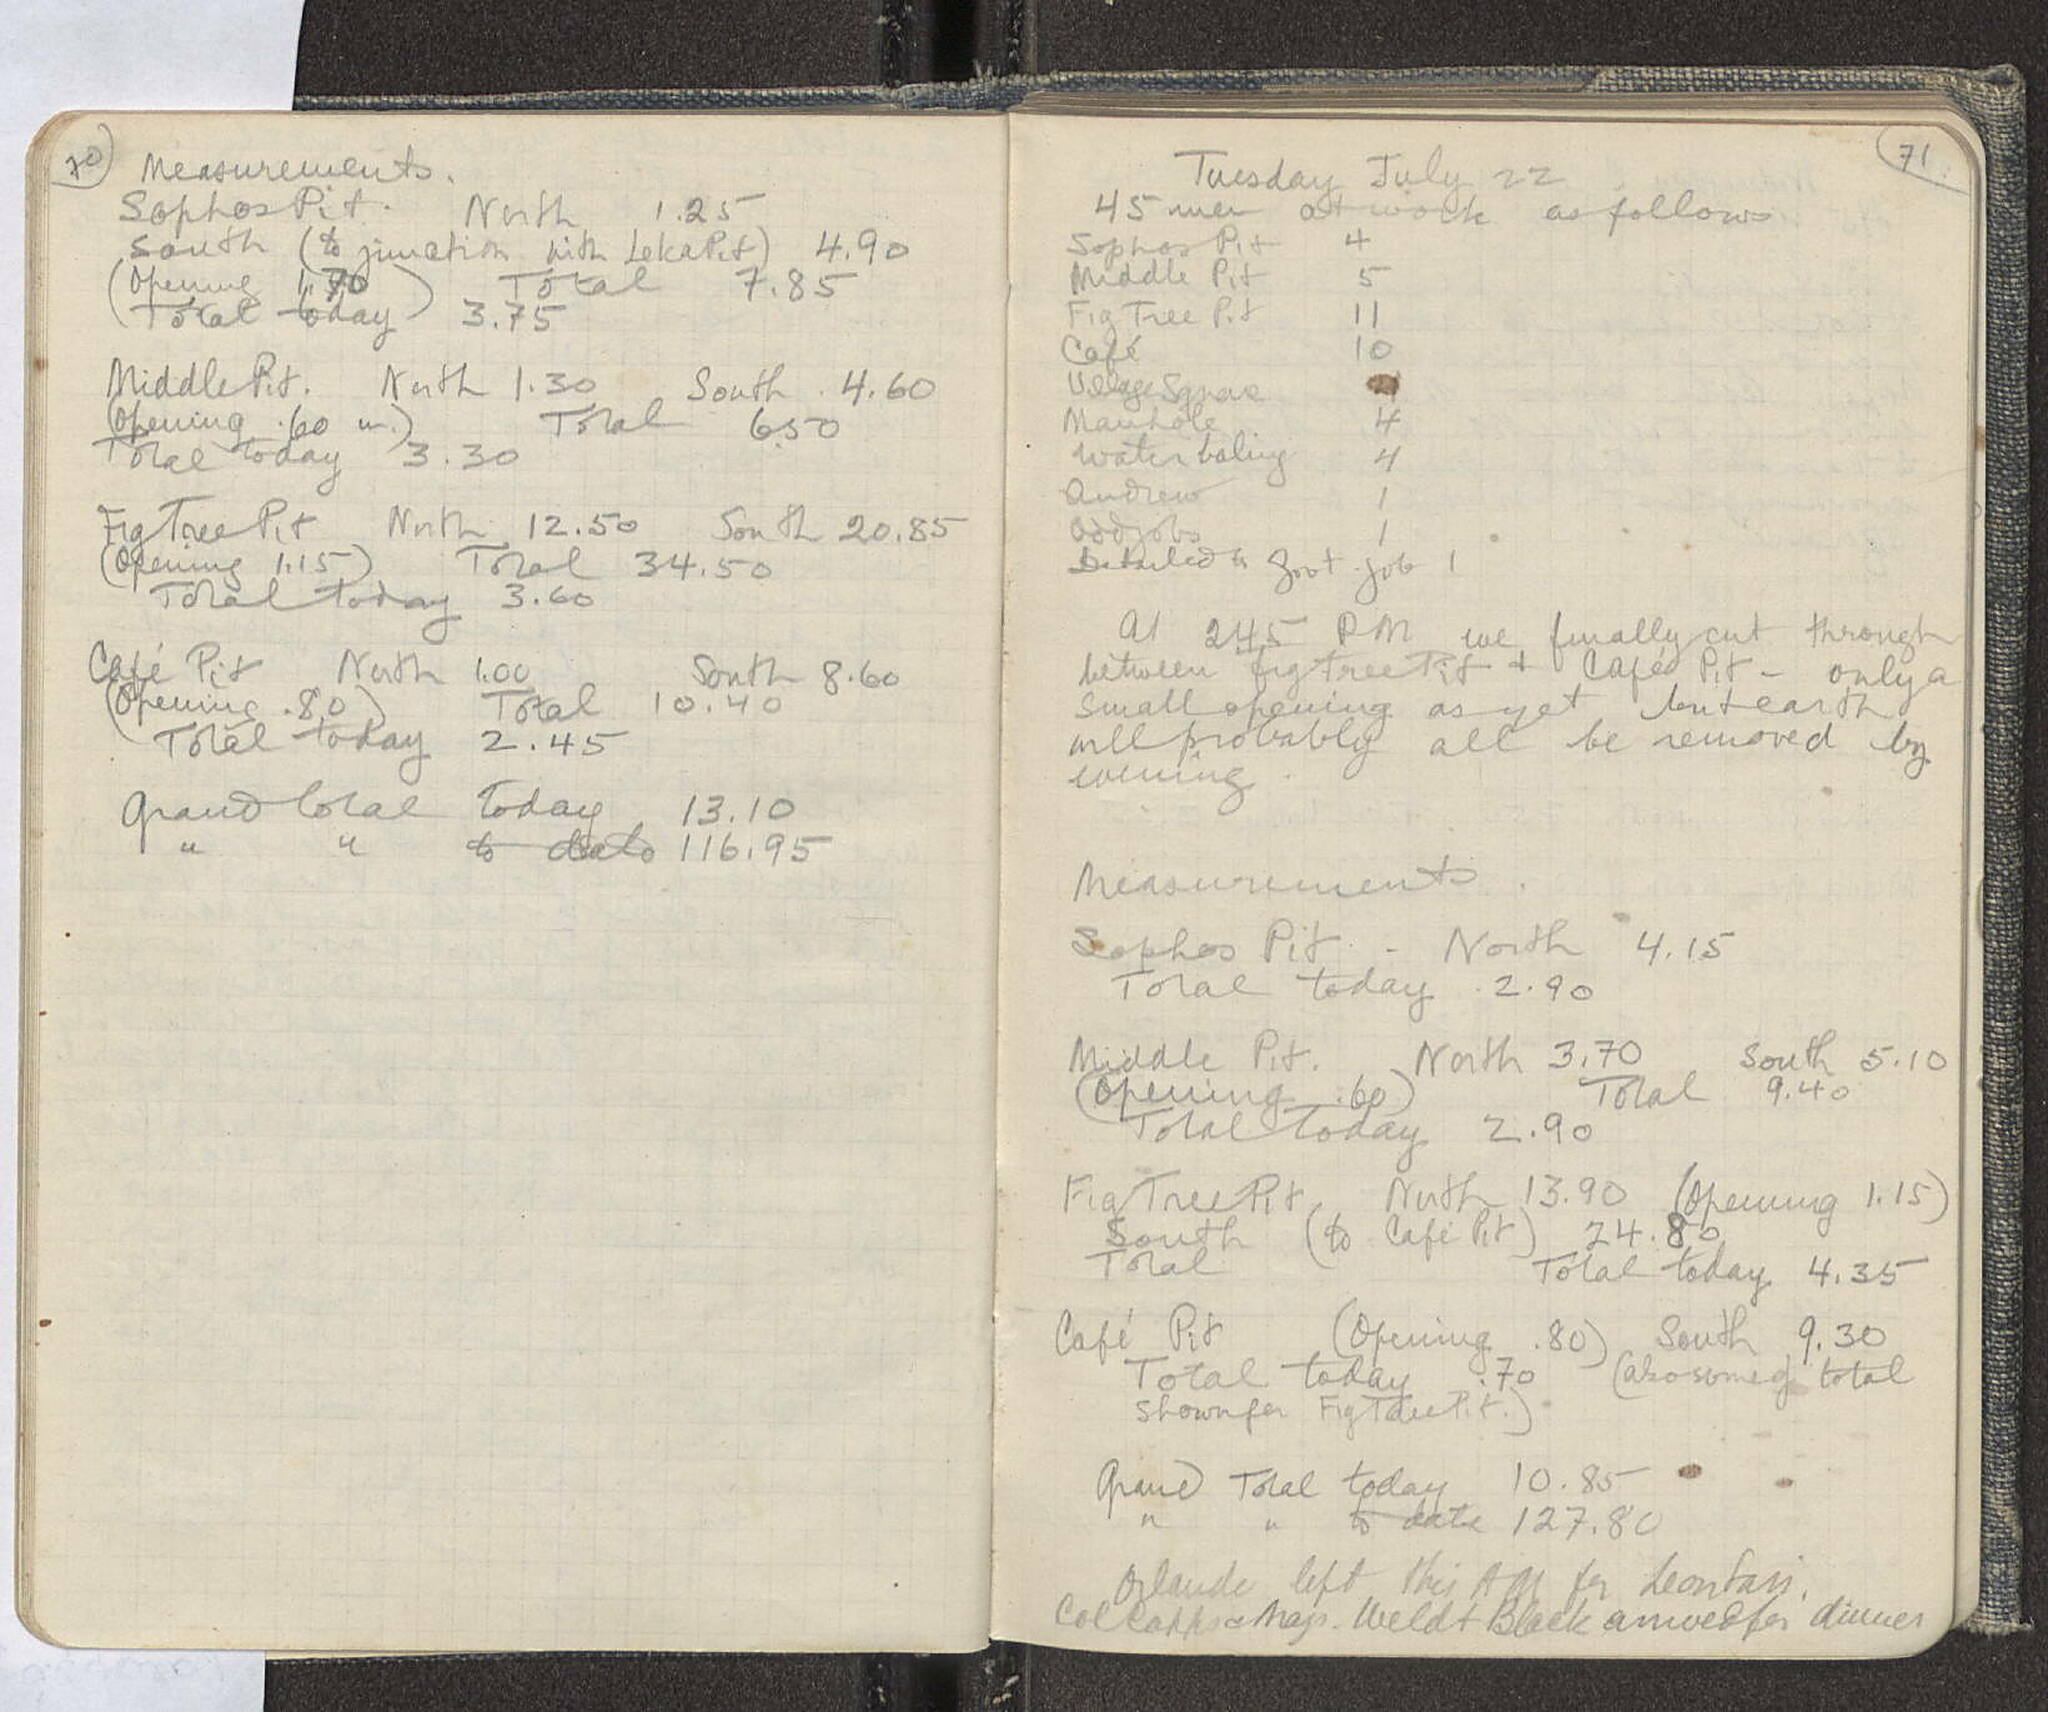 70
Measurements.
Sophos Pit. North 1.25
South (to junction with Leka Pit) 4.90
(Opening 1.70) Total 7.85
Total today 3.75
Middle Pit. North 1.30 South 4.60
(Opening .60 m.) Total 6.50
Total today 3.30
Fig Tree Pit North 12.50 South 20.85
(Opening 1.15) Total 34.50
Total today 3.60
Café Pit North 1.00 South 8.60
(Opening .80) Total 10.40
Total today 2.45
Grand total today 13.10
" " to date 116.95
71
Tuesday July 22
45 men at work as follows
Sophos Pit 4
Middle Pit 5
Fig Tree Pit 11
Café 10
Village Square
Manhole 4
Water baling 4
Andrew 1
Odd jobs 1
Detailed to Govt. job 1
At 2.45 PM we finally cut through
between Fig Tree Pit + Café Pit - only a
small opening as yet but earth
will probably all be removed by
evening.
Measurements.
Sophos Pit. - North 4.15
Total today 2.90
Middle Pit. North 3.70 South 5.10
(Opening .60) Total 9.40
Total today 2.90
Fig Tree Pit North 13.90 (Opening 1.15)
South (to Café Pit) 24.80
Total Total today 4.35
Café Pit (Opening .80) South 9.30
Total today .70 (also some of total
shown for Fig Tree Pit.)
Grand Total today 10.85
" " to date 127.80
Orlando left this AM for Leontari.
Col Capps & Mrs. Weld + Black arrived for dinner